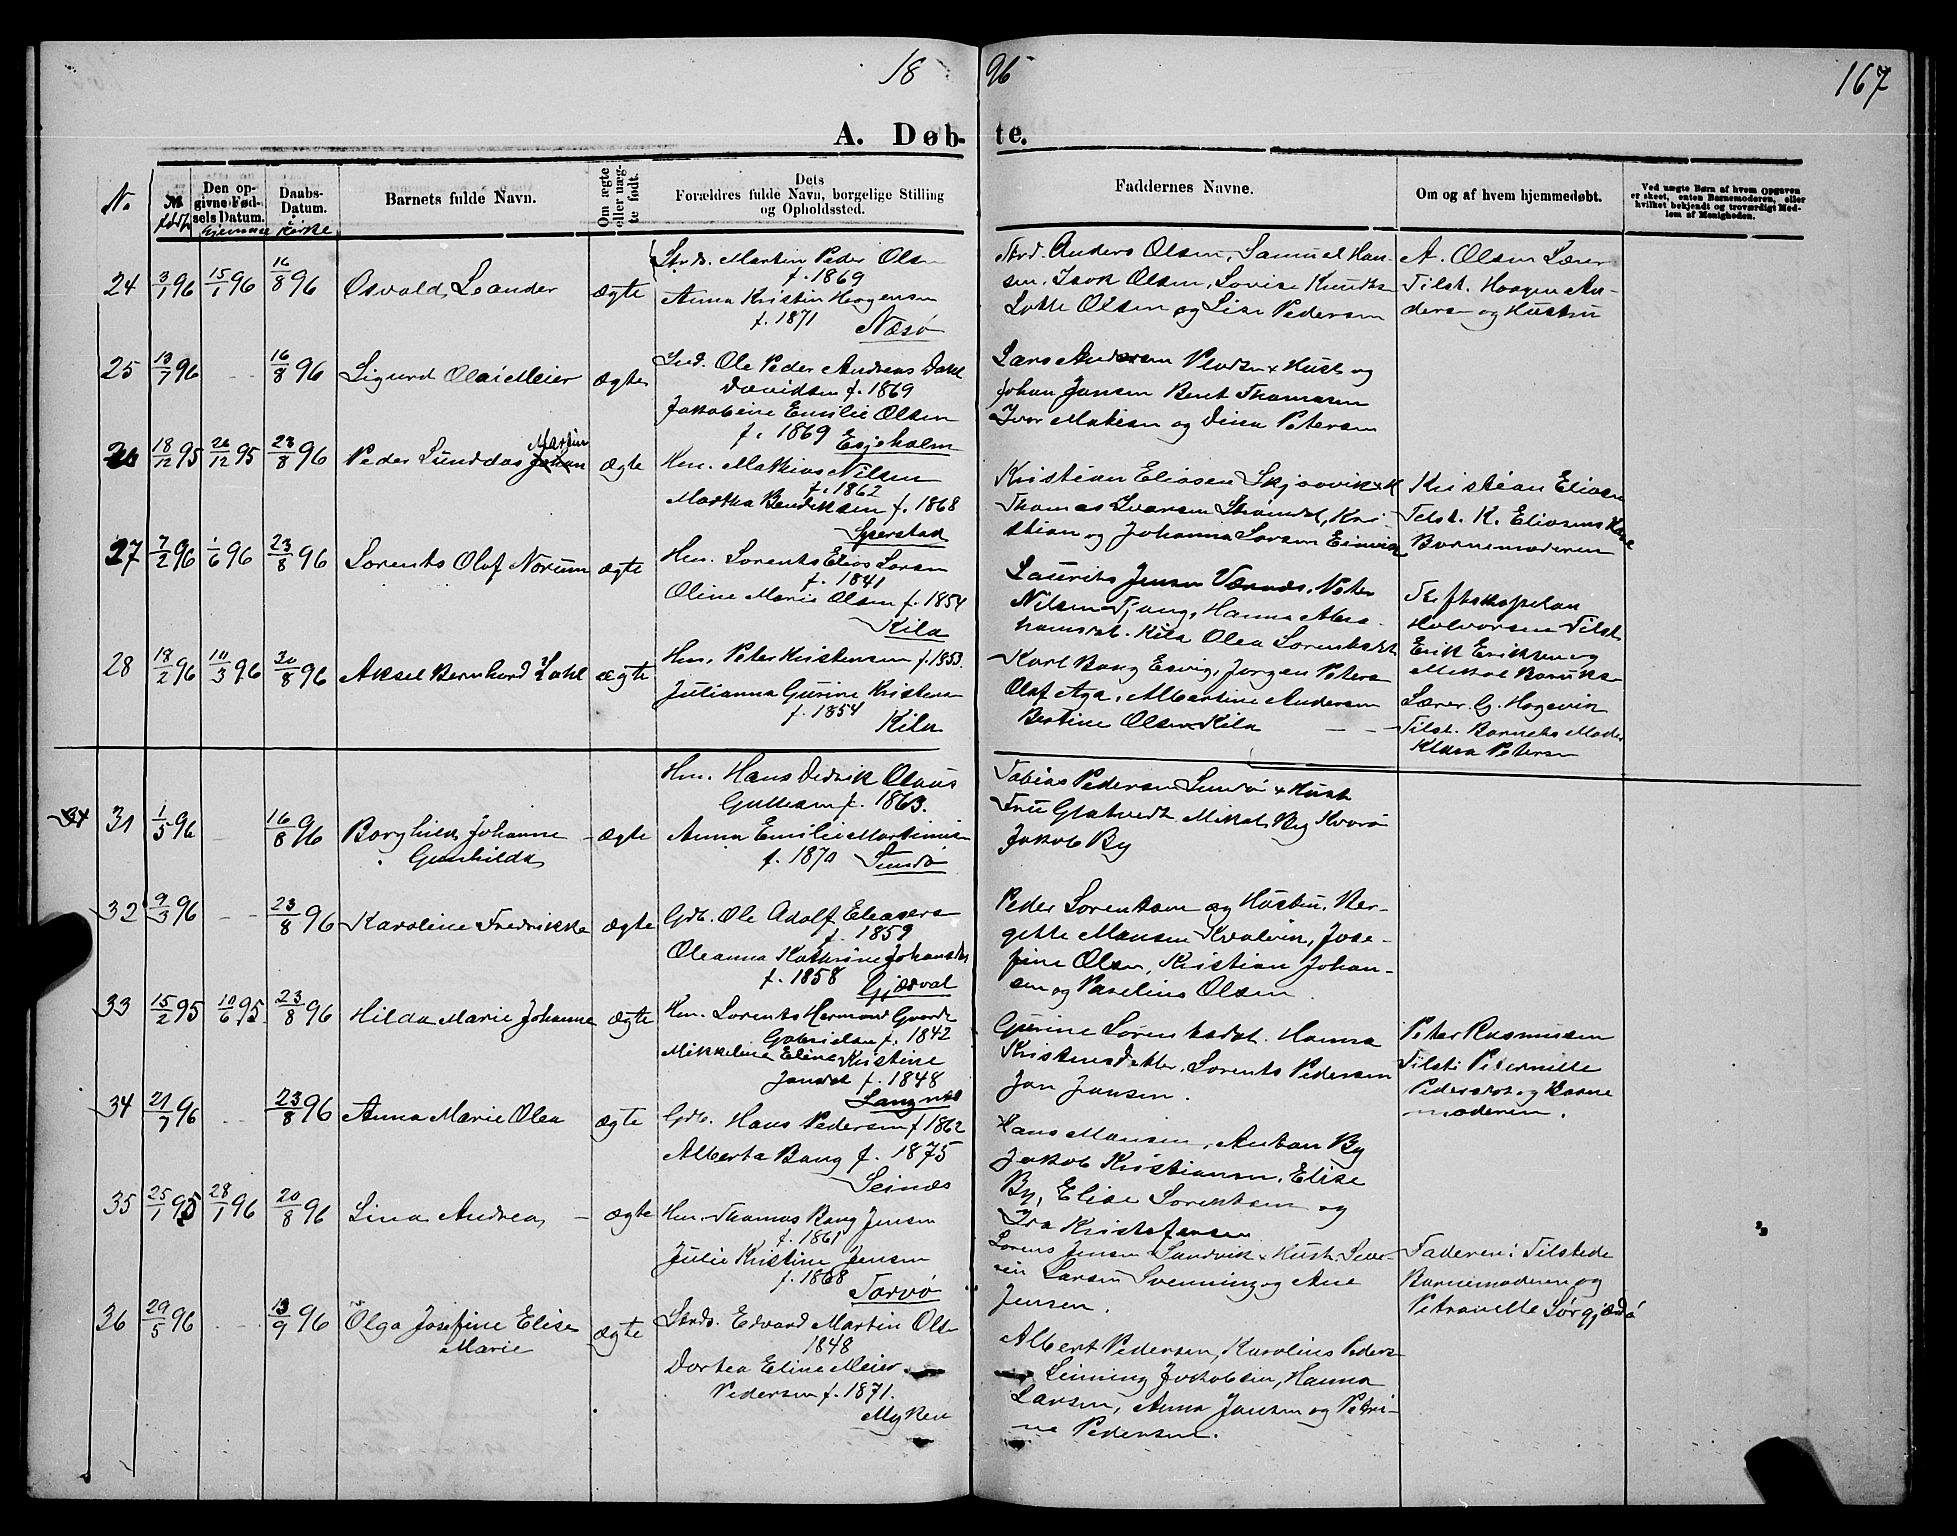 18 96
167
A. Døbte.
No.
№
født
Den opgivne Fødselsdatum.
Hjemme
Daabs-Datum.
i Kirke
Barnets fulde Navn.
Om ægte eller uægte født.
Dets Forældres fulde Navn, borgelige Stilling og Opholdssted.
Faddernes Navne.
Om og af hvem hjemmedøbt.
Ved uægte Børn af hvem Opgaven er skeet, enten Barnemoderen, eller hvilket bekjendt og troværdigt Medlem af Menigheden.
24 3/1 96 15/1 96 16/8 96 Osvald Leander ægte
Strds. Martin Peder Olsen
f. 1869
Anna Kristin Hogensen
f. 1871 Næsø
Strd. Anders Olsen, Samuel Han-
sen, Isak Olsen, Lovise Knudts
Lotte Olsen og Lise Pedersen
A. Olsen Lærer
Tilst. Haagen An-
dersen og Hustru
25 13/7 96 - 16/8 96 Sigurd Olai Meier ægte
Ind. Ole Peder Andreas Dahl
Davidsen f. 1869
Jakobine Emilie Olsen
f. 1869 Esjeholm
Lars Andersen Vlodsen + Hust og
Johan Jansen Berit Thomasen
Ivar Matisen og Dina Petersen
26 18/12 95 26/12 95 23/8 96 Peder Lunddas Johan Martin ægte
Hm. Mathias Nilsen
f. 1862
Martha Bendiksen f. 1868
Sperstad
Kristian Eliasen Skjaavik + K
Thomas Ivarsen Strandt, Kri-
stian og Johanna Larsen Eimvik
Kristian Eliasen
Tilst. K. Eliasens Kone
Barnemoderen
27 7/2 96 1/6 96 23/8 96 Lorents Olaf Norum ægte
Hm. Lorents Elias Larsen
f. 1841
Oline Marie Olsen f. 1854
Kila
Laurits Jensen Værnes, Peter
Nilsen Tjong, Hanna Abra-
hamsdat. Kila Olea Lorentsdat
Stiftskapelan
Halvorsen Tilst.
Erik Eriksen og
Mikal Baruks
28 18/2 96 10/3 96 30/8 96 Aksel Bernhard Dahl ægte
Hm. Peter Kristensen f. 1853.
Julianna Gurine Kristensen
f. 1854 Kila
Karl Bang Esvig, Jørgen Peters
Olaf Aga, Albertine Andersen
Bertine Olsen Kila
Lærer G. Hogsvik
Tilst. Barnets Moder
Klara Petersen
31 31 1/5 96 - 16/8 96 Borghild Johanne
Gunhilda ægte
Hm. Hans Didrik Olaus
Gullesen f. 1863.
Anna Emilie Martinus
f. 1870 Sundø
Tobias Pedersen Sundø + Hust
Fru Glatvedt Mikal By Kvarø
Jakob By
32 9/3 96 - 23/8 96 Karoline Fredrikke ægte
Gdb. Ole Adolf Eleasers
f. 1859
Oleanna Kathrine Johansdtr
f. 1858 Gjærval
Peder Lorentsen og Hustru, Mar-
gitte Mansen Kvalvik, Jose-
fine Olsen, Kristian Johan-
sen og Paselius Olsen
33 15/2 95 10/6 95 23/8 96 Hilda Marie Johanne ægte
Hm. Lorents Hermond Guardt
Gabrielsen f. 1842
Mikkeline Eline Kristine
Jansdat f. 1848
Langnes
Gurine Lorentsdat. Hanna
Kristensdatter, Lorents Pedersen
Jan Jansen.
Peter Rasmussen
Tilst: Pedernille
Pedersdat og Barne
moderen.
34 21/7 96 - 23/8 96 Anna Marie Olea ægte
Gdb. Hans Pedersen f 1862
Alberta Bang f. 1875
Seinæs
Hans Mansen, Anton By
Jakob Kristiansen, Elise
By, Elise Sorentsen og
Ida Kristofersen
35 25/1 95 28/1 96 20/8 96 Lina Andrea ægte
Hm. Thomas Bang Jensen
f. 1861
Julie Kristine Jensen
f. 1868
Tarvø
Lorens Jensen Sandvik + Hust. Seve-
rin Larsen Svenning og Ane
Jensen.
Faderen: Tilstede
Barnemoderen og
Petranelle Sørgjærø
36 29/5 96 - 13/9 96 Olga Josefine Elise
Marie ægte
Strds. Edvard Martin Olsen
1848
Dortea Eline Meier
Pedersen f. 1871.
Myken
Albert Pedersen, Karolius Peders
Lenning Jakobsen, Hanna
Larsen, Anna Jansen og Petri-
ne Pedersen.